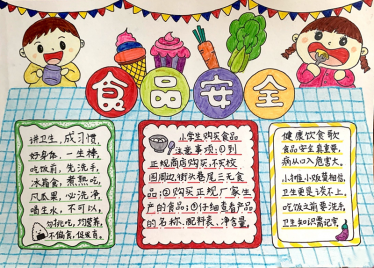 食品安全
讲卫生,成习惯,
好身体,一生棒,
吃饭前,先洗手,
冰箱食,煮熟吃,
风瓜果,必洗净,
喝生水,不可以,
勿挑吃,均营养,
不偏食,促发育。
小学生购买食品
注意事项:①到
正规商店购买,不买校
园周边,街头巷尾三无食
品;②购买正规厂家生
产的食品;③仔细查看产品
的名称、配料表、净含量。
健康饮食歌
食品安全真重要,
病从口入危害大,
小摊小贩莫相信,
卫生更是谈不上,
吃饭之前要洗手,
卫生知识需记牢。